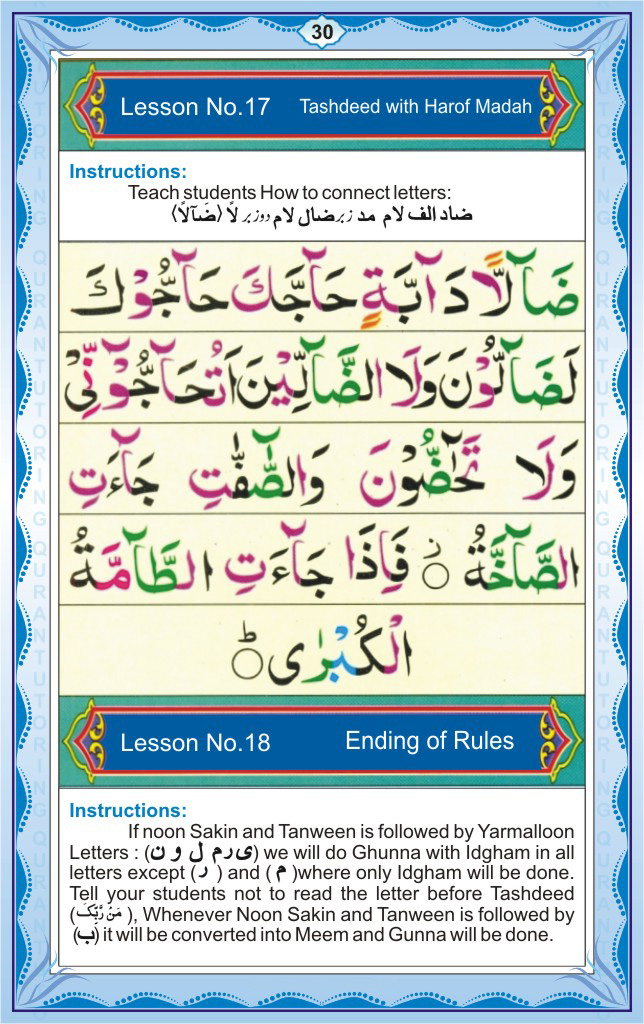 30
Lesson No.17 Tashdeed with Harof Madah
Instructions:
Teach students How to connect letters:
ضاد الف لام مد زبر ضال لام دو زبر لاً (ضَآلاًّ)
ضَآلًّا دَآبَّةٍ حَآجَّكَ حَآجُّوْكَ
لَضَآلُّوْنَ وَلَا الضَّآلِّيْنَ اَتُحَآجُّوْنِّىْ
وَلَا تَحٰٓضُّوْنَ وَالصّٰٓفّٰتِ جَآءَتِ
الصَّآخَّةُ ۝ ز فَاِذَا جَآءَتِ الطَّآمَّةُ
الْكُبْرٰى ۝ ط
Lesson No.18 Ending of Rules
Instructions:
If noon Sakin and Tanween is followed by Yarmalloon
Letters : (ی ر م ل و ن) we will do Ghunna with Idgham in all
letters except ( ر ) and ( م )where only Idgham will be done.
Tell your students not to read the letter before Tashdeed
(مَنْ رَّبُّكَ ), Whenever Noon Sakin and Tanween is followed by
(ب) it will be converted into Meem and Gunna will be done.